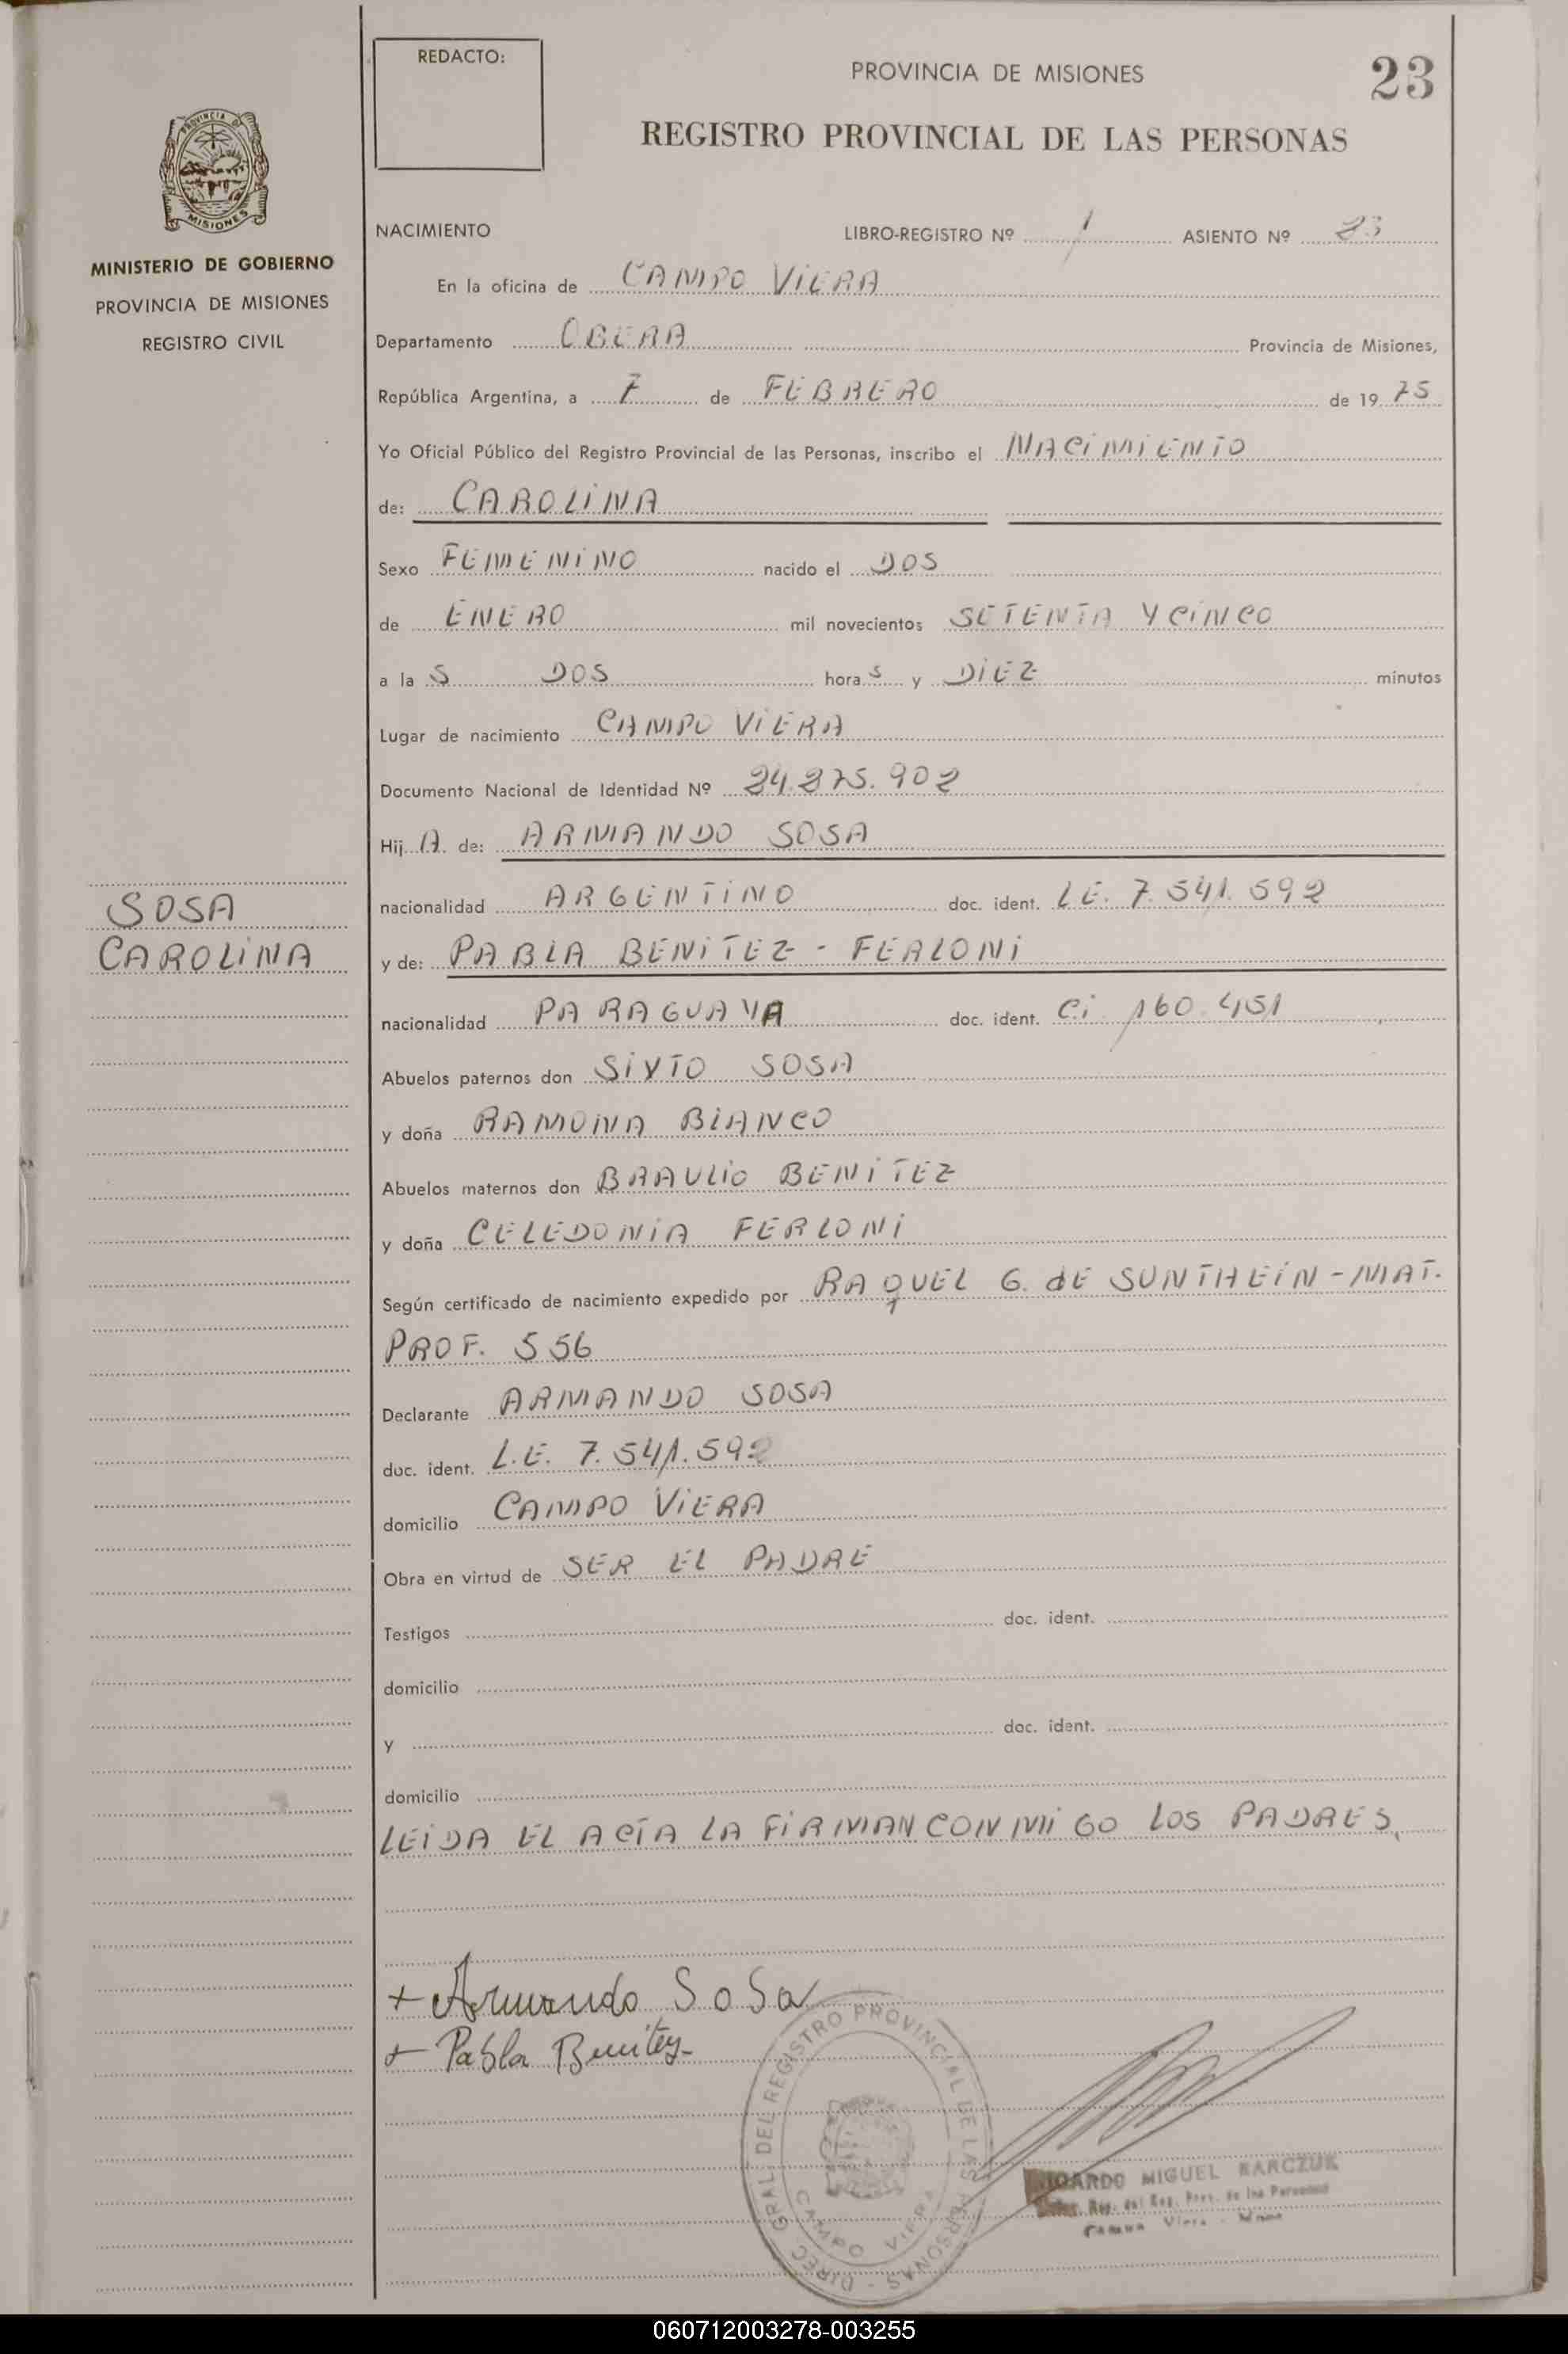 REDACTO:
PROVINCIA DE MISIONES
23
REGISTRO PROVINCIAL DE LAS PERSONAS
PROVINCIA DE
MISIONES
MINISTERIO DE GOBIERNO
PROVINCIA DE MISIONES
REGISTRO CIVIL
NACIMIENTO LIBRO-REGISTRO Nº 1 ASIENTO Nº 23
En la oficina de CAMPO VIERA
Departamento OBERA Provincia de Misiones,
República Argentina, a 7 de FEBRERO de 19 75
Yo Oficial Público del Registro Provincial de las Personas, inscribo el NACIMIENTO
de: CAROLINA
Sexo FEMENINO nacido el DOS
de ENERO mil novecientos SETENTA Y CINCO
a la S DOS hora S y DIEZ minutos
Lugar de nacimiento CAMPO VIERA
Documento Nacional de Identidad Nº 24.275.902
Hij A de: ARMANDO SOSA
SOSA
CAROLINA
nacionalidad ARGENTINO doc. ident. L.E. 7.541.592
y de: PABLA BENITEZ - FERLONI
nacionalidad PARAGUAYA doc. ident. C.i. 160.451
Abuelos paternos don SIXTO SOSA
y doña RAMONA BIANCO
Abuelos maternos don BRAULIO BENITEZ
y doña CELEDONIA FERLONI
Según certificado de nacimiento expedido por RAQUEL G. dE SUNTHEIN - MAT.
PROF. 556
Declarante ARMANDO SOSA
doc. ident. L.E. 7.541.592
domicilio CAMPO VIERA
Obra en virtud de SER EL PADRE
Testigos doc. ident.
domicilio
y doc. ident.
domicilio
LEIDA EL ACTA LA FIRMAN CONMIGO LOS PADRES,
+ Armando SoSa
+ Pabla Benitez
DIREC. GRAL. DEL REGISTRO PROVINCIAL DE LAS PERSONAS -
CAMPO VIERA
MIGUEL KARCZUK
060712003278-003255